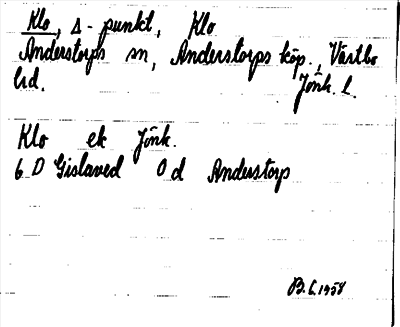 Klo, Δ-punkt, Klo
Anderstorps sn, Anderstorps köp., Västbo
hd. Jönk. l.
Klo ek Jönk.
6 D Gislaved 0 d Anderstorp
B. L. 1958